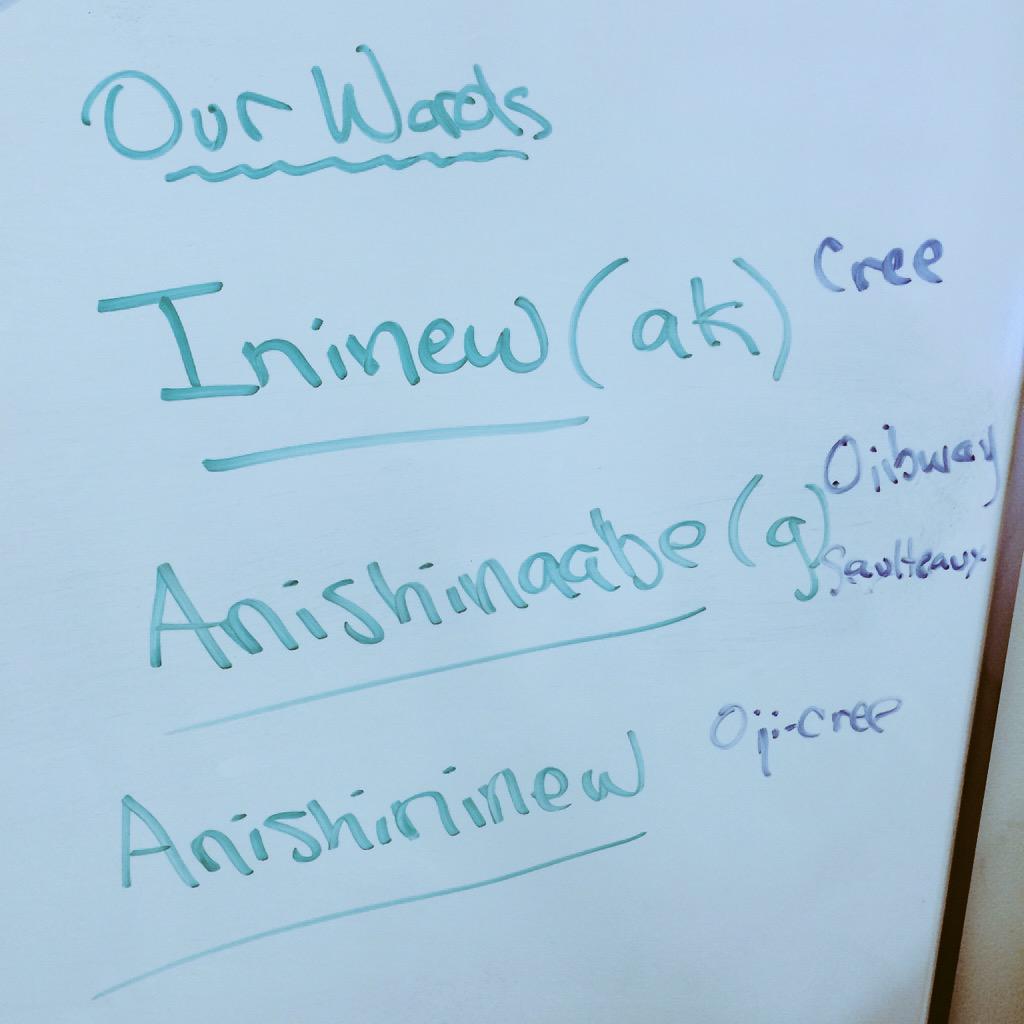 Our Words
Ininew (ak) Cree
Anishinaabe (g) Ojibway
Saulteaux
Anishininew Oji-cree